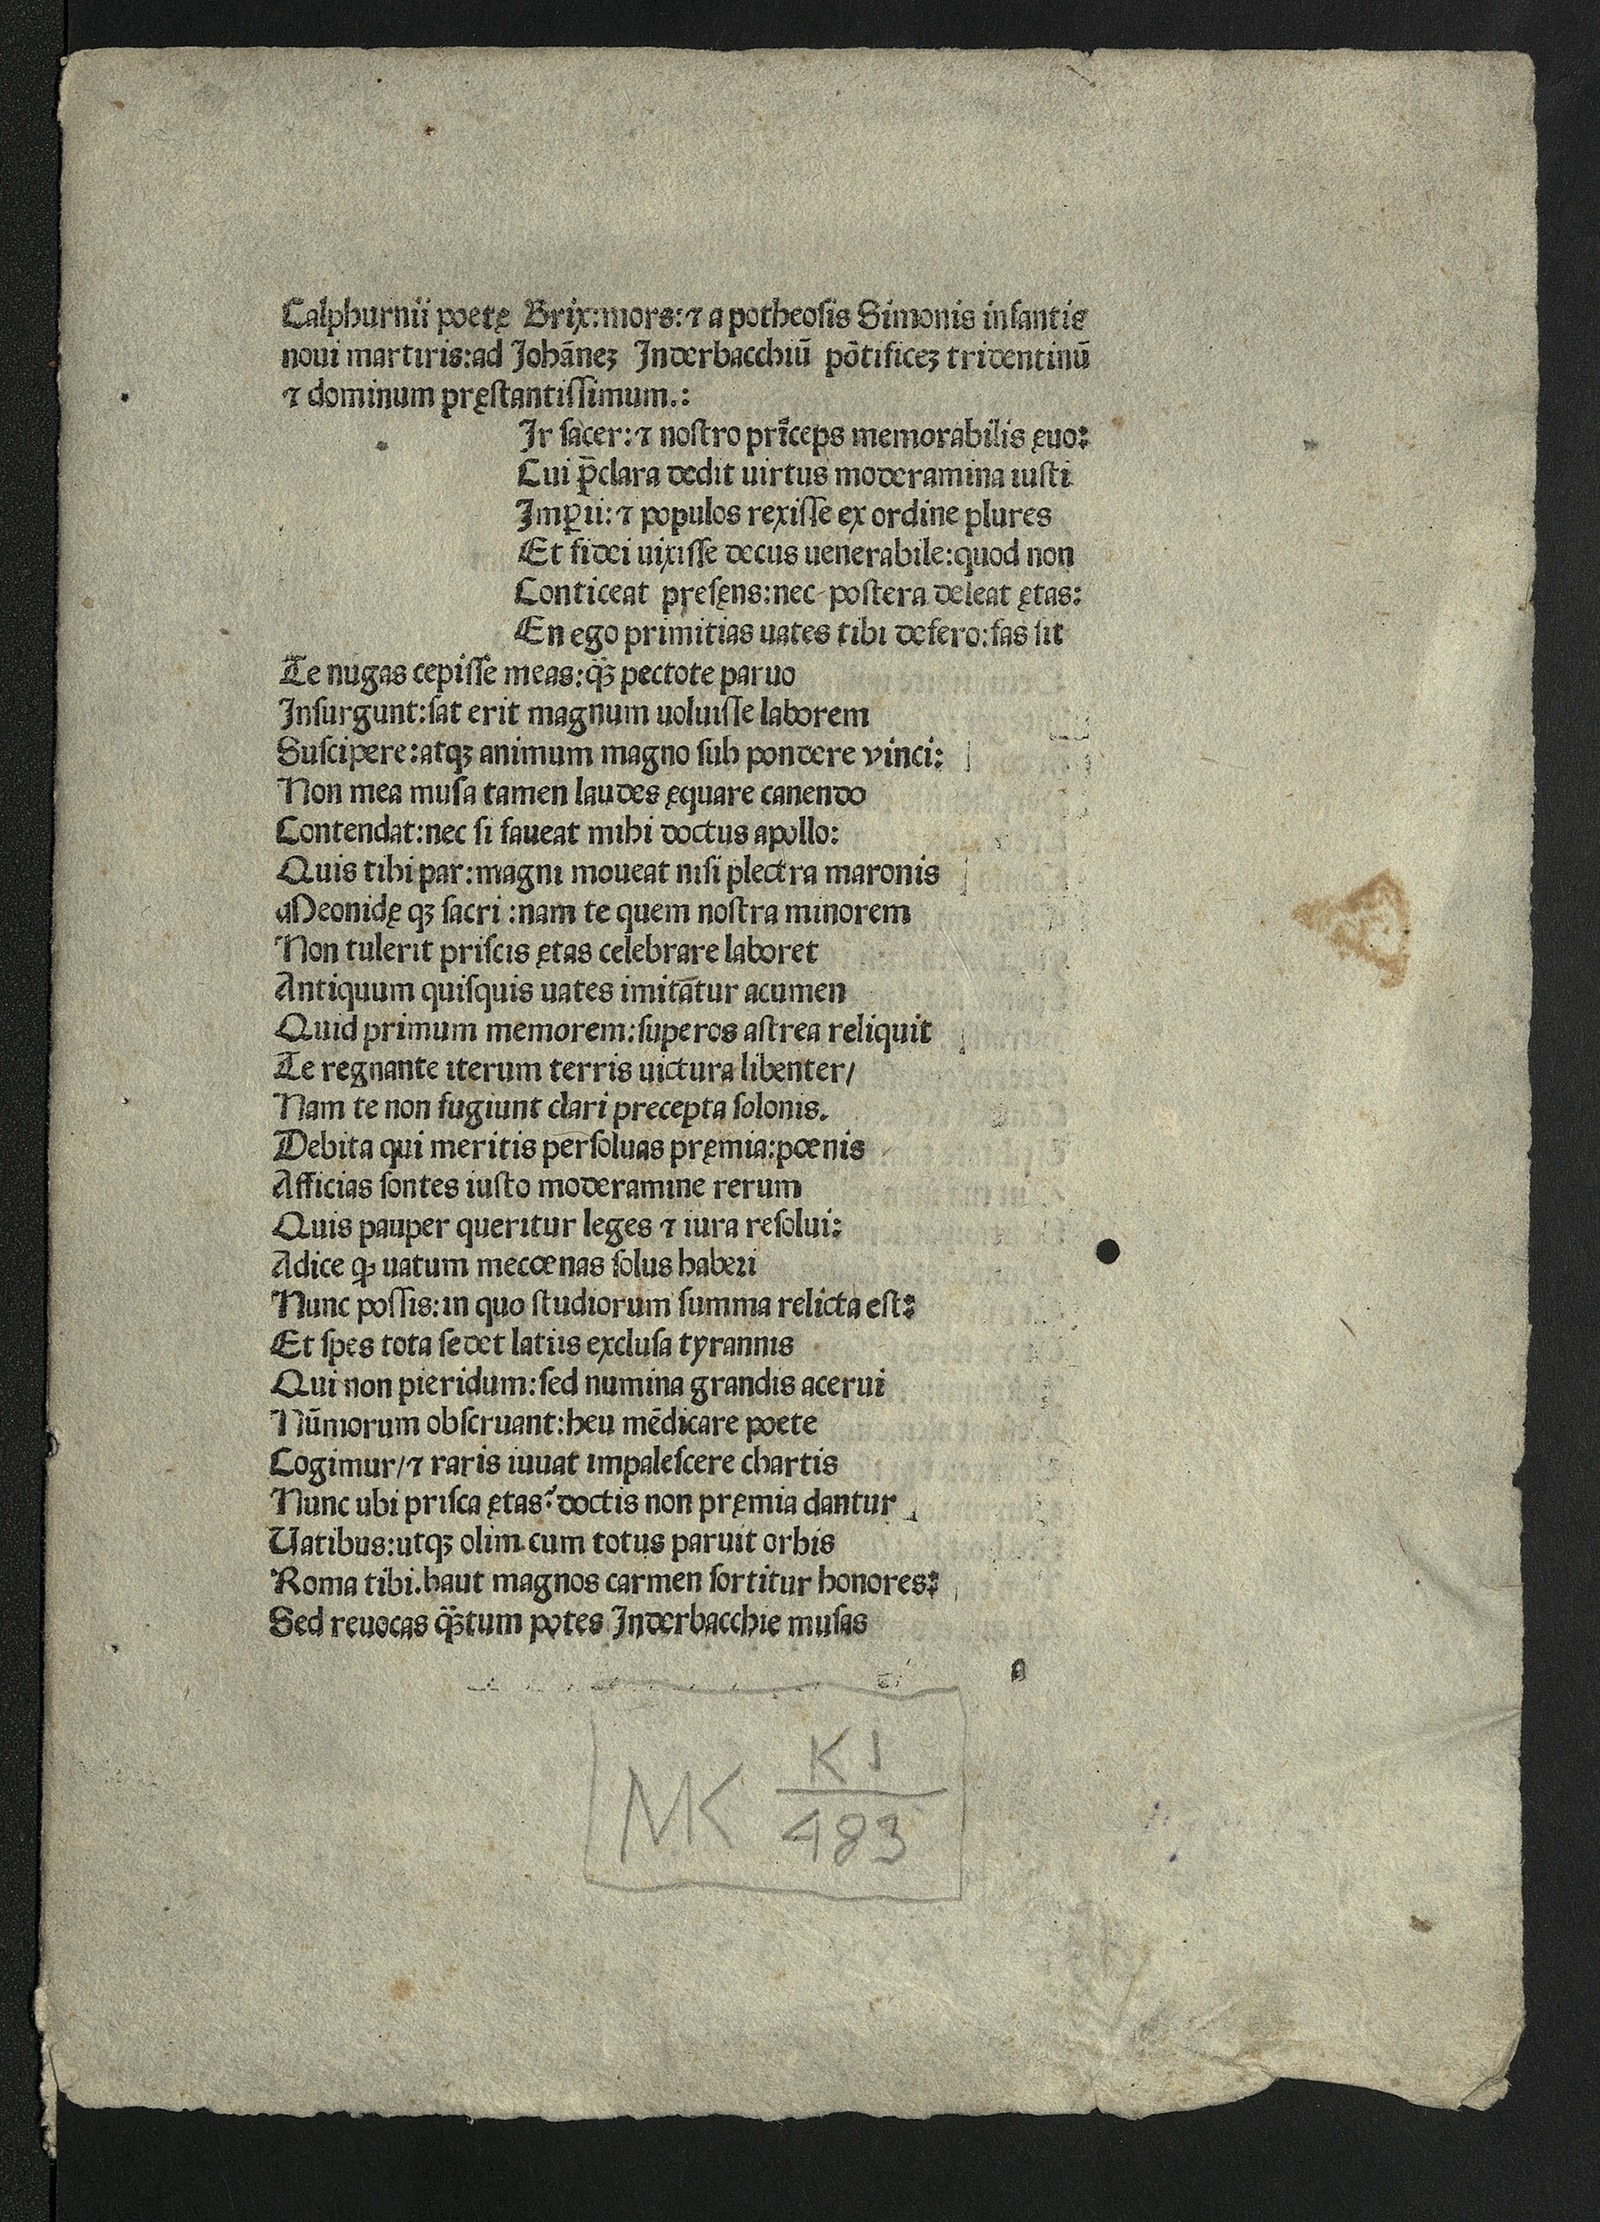 Calphurnii poetę Brix:mors:⁊ a potheosis Simonis infantis
noui martiris:ad Johānez Inderbacchiū pōtificez tridentinū
⁊ dominum pręstantissimum.:
Ir sacer:⁊ nostro prīceps memorabilis ęuo:
Cui p̄clara dedit uirtus moderamina iusti
Imꝑii:⁊ populos rexisse ex ordine plures
Et fidei uixisse decus uenerabile:quod non
Conticeat presęns:nec postera deleat ętas:
En ego primitias uates tibi defero:fas sit
Te nugas cepisse meas:q̃ꝫ pectote paruo
Insurgunt:sat erit magnum uoluisse laborem
Suscipere:atqꝫ animum magno sub pondere vinci:
Non mea musa tamen laudes ęquare canendo
Contendat:nec si faueat mihi doctus apollo:
Quis tibi par:magni moueat nisi plectra maronis
Meonidę qꝫ sacri :nam te quem nostra minorem
Non tulerit priscis ętas celebrare laboret
Antiquum quisquis uates imitātur acumen
Quid primum memorem:superos astrea reliquit
Te regnante iterum terris uictura libenter/
Nam te non fugiunt clari precepta solonis.
Debita qui meritis persoluas pręmia:pœnis
Afficias sontes iusto moderamine rerum
Quis pauper queritur leges ⁊ iura resolui:
Adice ꝙ uatum mecœnas solus haberi
Nunc possis:in quo studiorum summa relicta est:
Et spes tota sedet latiis exclusa tyrannis
Qui non pieridum:sed numina grandis acerui
Nūmorum obseruant:heu mēdicare poete
Cogimur/⁊ raris iuuat impalescere chartis
Nunc ubi prisca ętas? doctis non pręmia dantur
Uatibus:utqꝫ olim cum totus paruit orbis
Roma tibi.haut magnos carmen sortitur honores:
Sed reuocas q̃ꝫtum potes Inderbacchie musas
a
MK KI
483